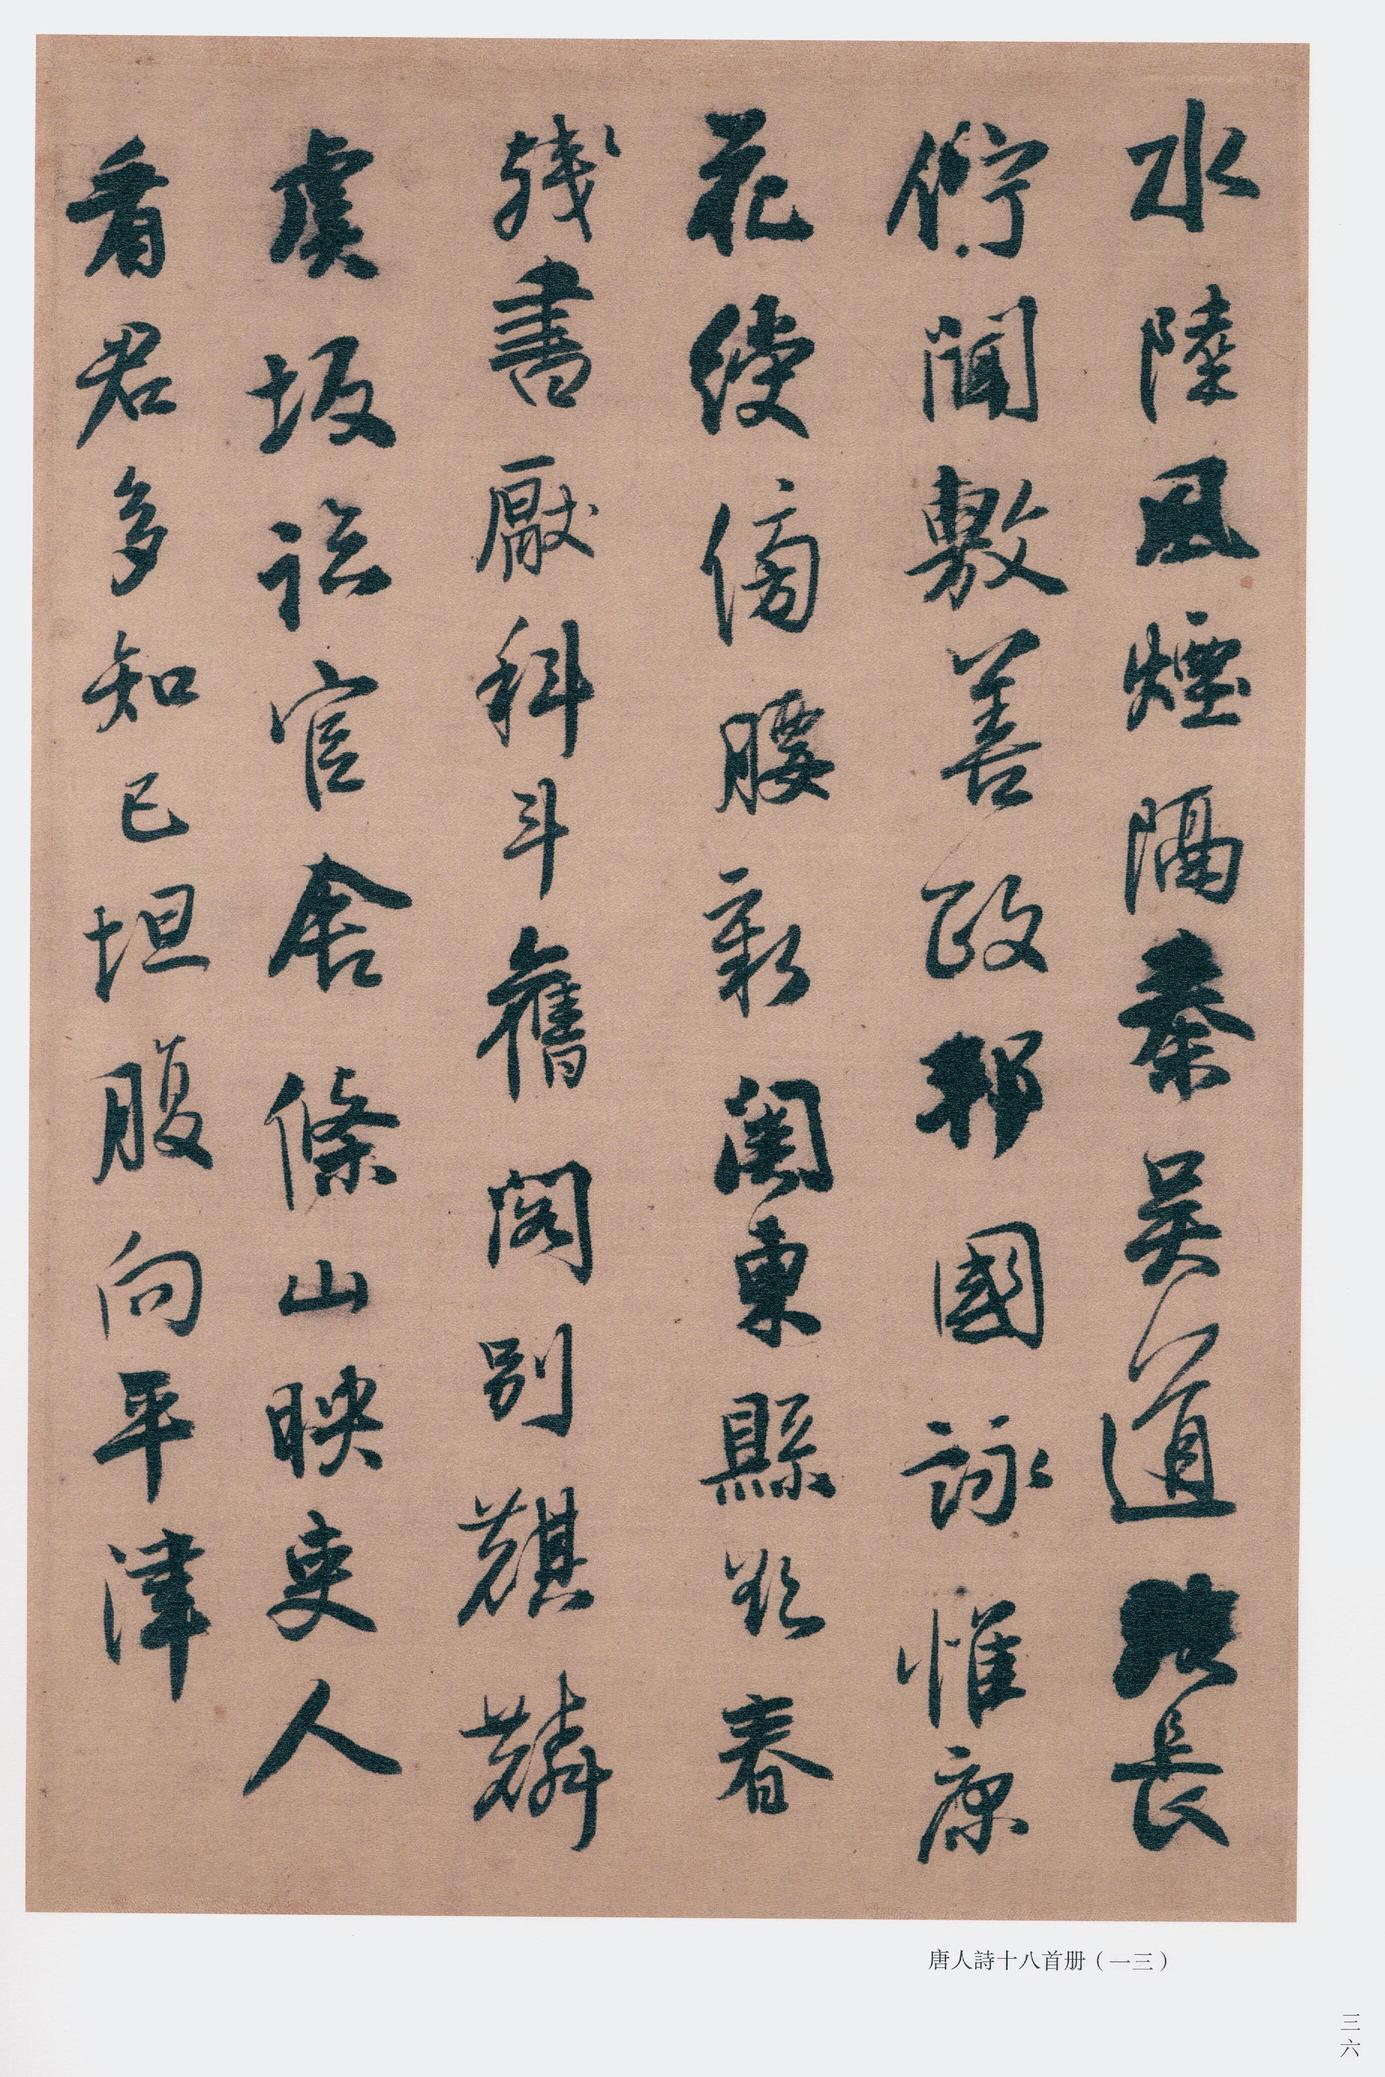 水陸風煙隔秦吳道路長
佇聞敷善政邦國詠惟康
花綬傍腰新關東縣欲春
殘書厭科斗舊閣別麒麟
虞坂臨官舍條山映吏人
看君多知己坦腹向平津
唐人詩十八首册（一三）
三六